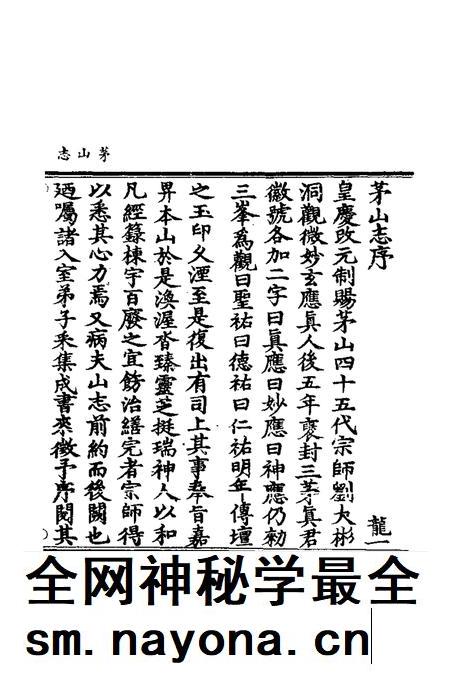 茅山志
茅山志序
龍一
皇慶改元制賜茅山四十五代宗師劉大彬
洞觀微妙玄應眞人後五年襃封三茅眞君
徽號各加二字曰眞應曰妙應曰神應仍勑
三峯爲觀曰聖祐曰德祐曰仁祐明年傳壇
之玉印久湮至是復出有司上其事奉旨嘉
畀本山於是渙渥沓臻靈芝挺瑞神人以和
凡經籙棟宇百廢之宜飭治繕完者宗師得
以悉其心力焉又病夫山志前約而後闕也
廼囑諸入室弟子采集成書來徵予序閱其
全网神秘学最全
sm.nayona.cn